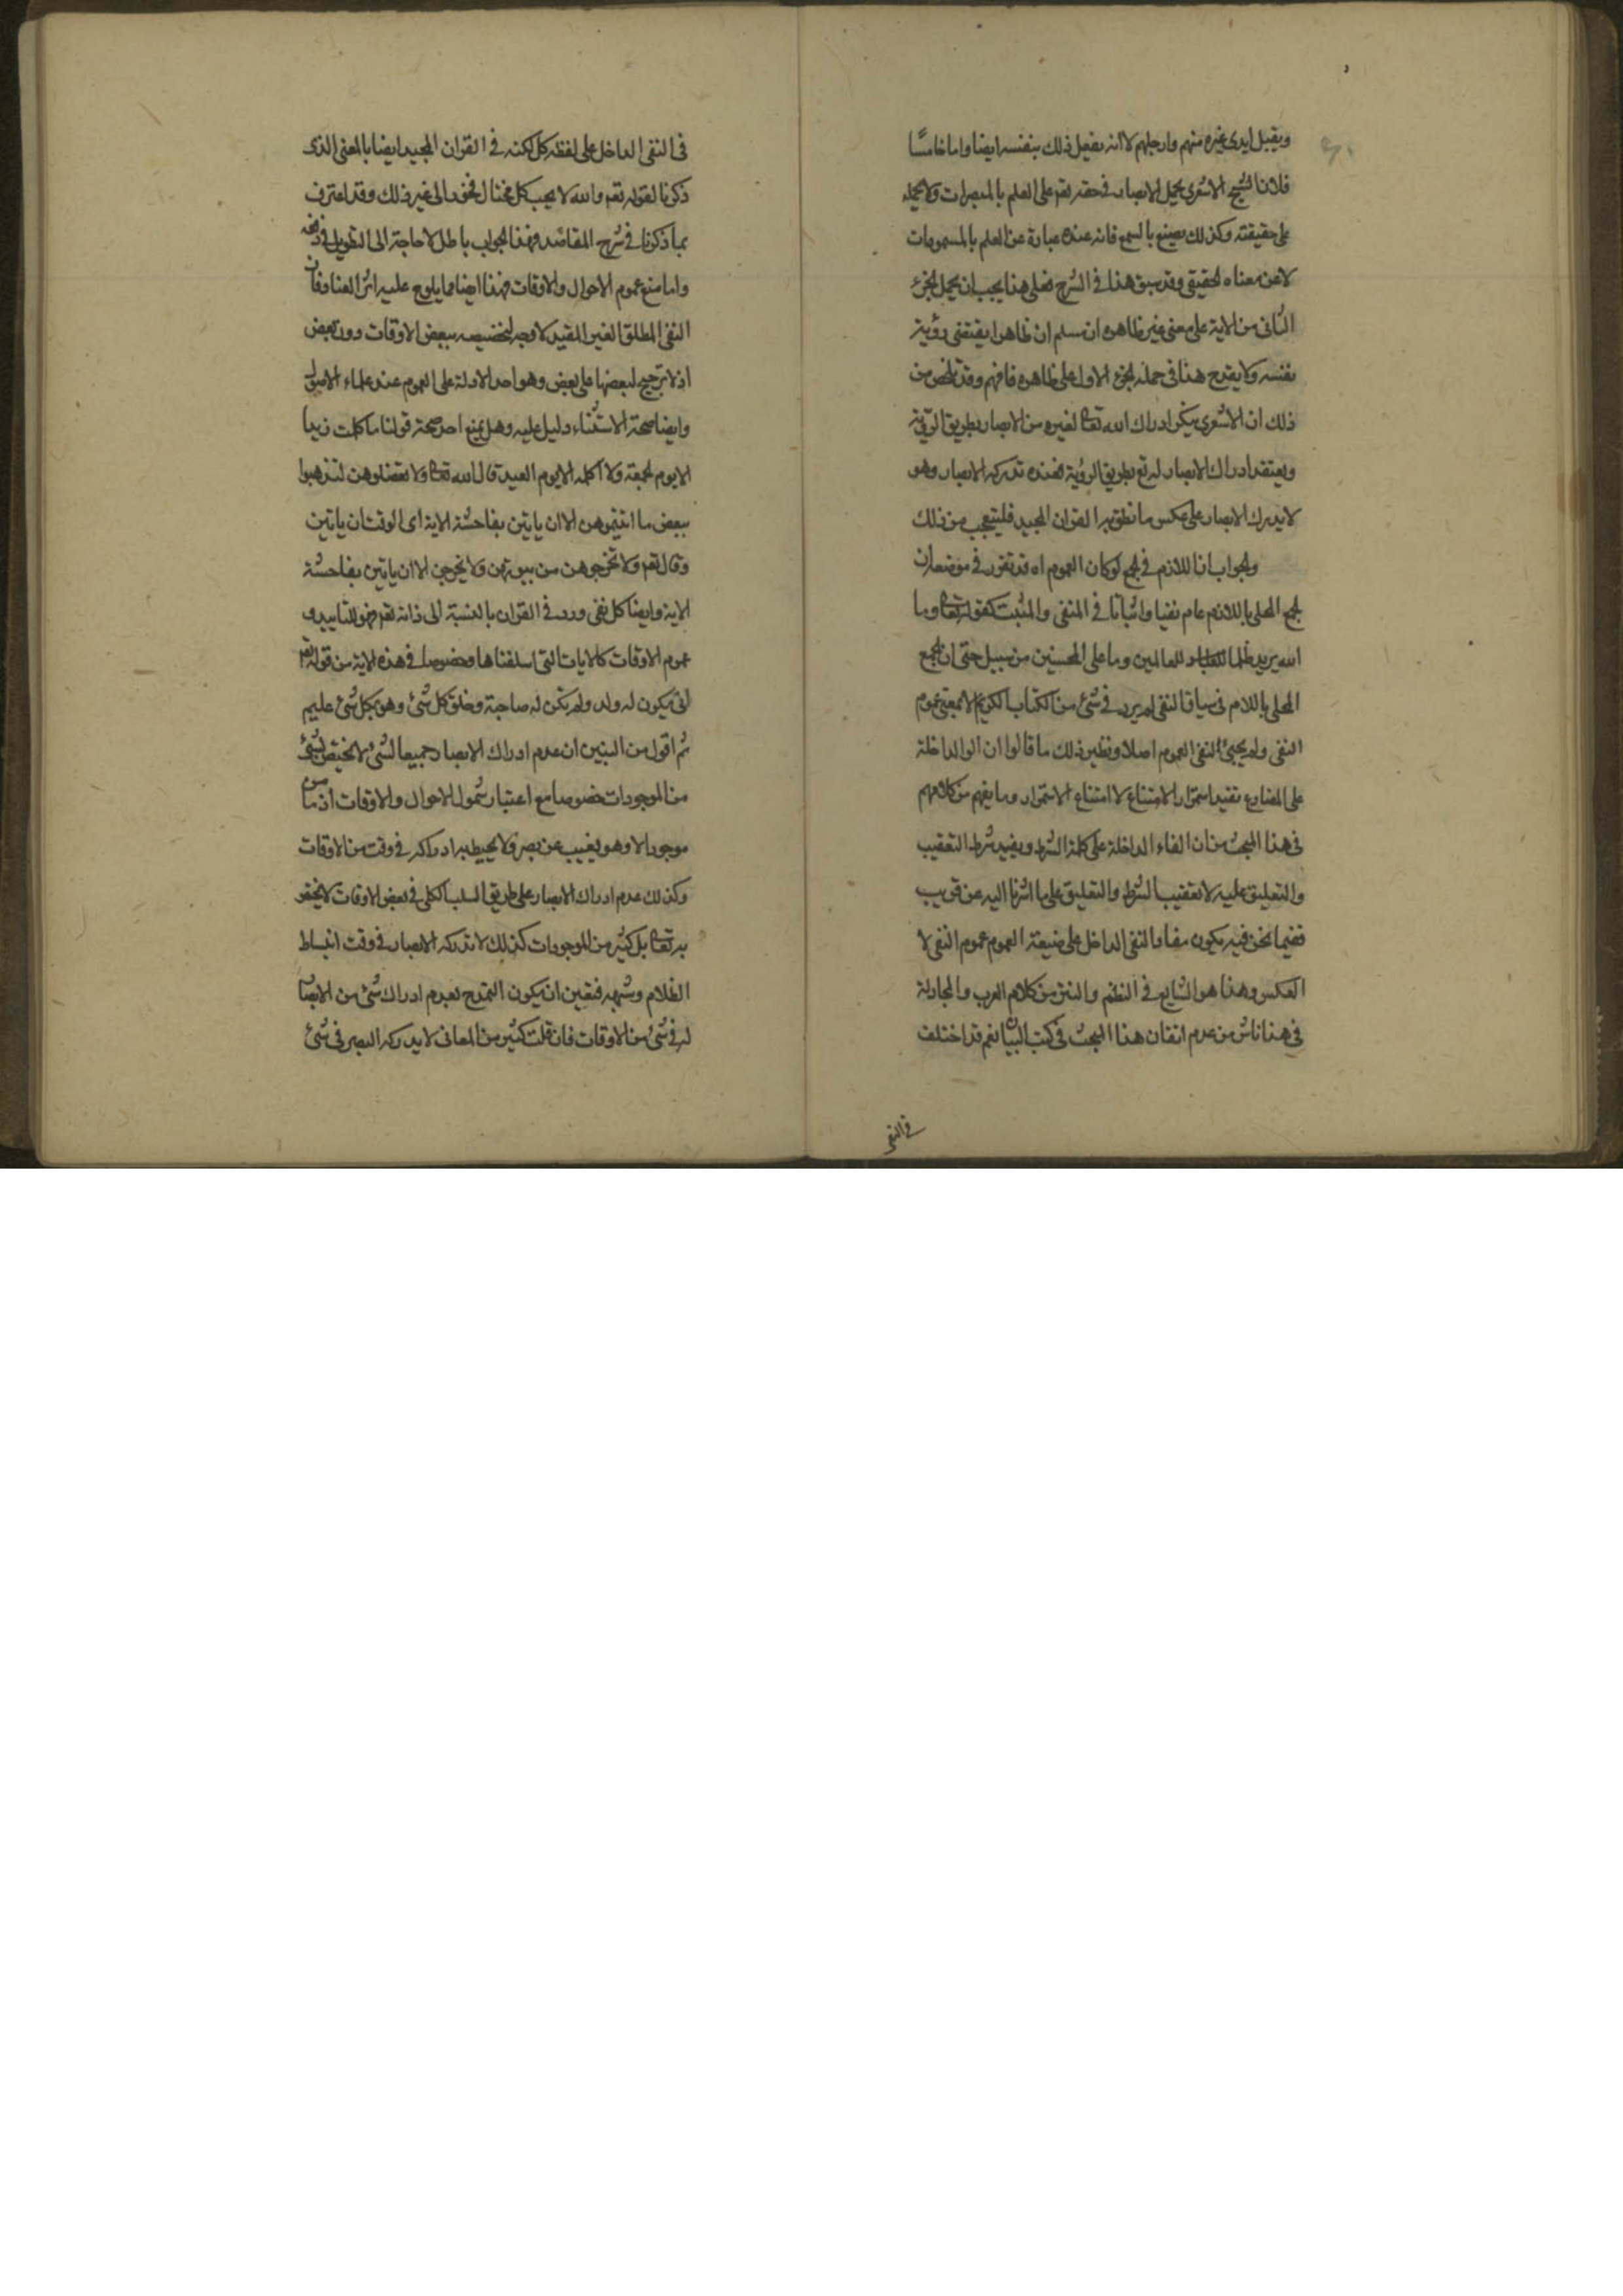 ويقبل ايدى غيره منهم وارجلهم لا انه يفعل ذلك بنفسه ايضا واما خامسًا
فلان الشيخ الاشعرى يحمل الابصار فى حقه تعم على العلم بالمبصرات ولا يحمله
على حقيقته وكذلك يصنع بالسمع فانه عنده عبارة عن العلم بالمسموعات
لا عن معناه الحقيقى وقد سبق هذا فى الشرح فعلى هذا يجب ان يحمل الجزء
الثانى من الاية على معنى غير ظاهره ان سلم ان ظاهرا يقتضى رؤية
نفسه ولا يقدح هذا فى حمله الجزء الاول على ظاهره فافهم وقد تلخص من
ذلك ان الاشعرى ينكر ادراك الله تعالى لغيره من الابصار بطريق الرؤية
ويعتقد ادراك الابصار له تع بطريق الرؤية فعنده تدركه الابصار وهو
لا يدرك الابصار على عكس ما نطق به القران المجيد فليتعجب من ذلك
والجواب ان اللازم فى الجمع لو كان العموم اه قد تقرر فى موضعه ان
الجمع المحلى باللام عام نفيا واثباتا فى المنفى والمثبت كقوله تعالى وما
الله يريد ظلما للعباد للعالمين وما على المحسنين من سبيل حتى ان الجمع
المحلى باللام فى سياق النفى لم يرد فى شئ من الكتاب الكريم الا بمعنى عموم
النفى ولم يجئ النفى العموم اصلا ونظير ذلك ما قالوا ان لو الداخلة
على المضارع تفيد استمرار الامتناع لا امتناع الاستمرار وما يفهم من كلامهم
فى هذا المبحث من ان الفاء الداخلة على كلمة الشرط ويفيد شرط التعقيب
والتعليق عليه لا تعقيب الشرط والتعليق على ما اشرنا اليه عن قريب
ففيما نحن فيه يكون مفاد النفى الداخل على صيغة العموم عموم النفى لا
العكس وهذا هو الشايع فى النظم والنثر من كلام العرب والمجادلة
فى هذا ناش من عدم اتقان هذا المبحث فى كتب البيان نعم قد اختلف
فى النفى
فى النفى الداخل على لفظه كل لكنه فى القران المجيد ايضا بالمعنى الذى
ذكرنا لقوله تعم والله لا يحب كل مختال فخور الى غير ذلك وقد اعترف
بما ذكرنا فى شرح المقاصد وهذا الجواب باطل لا حاجة الى التطويل فى دفعه
واما منع عموم الاحوال والاوقات فهذا ايضا مما يلوح عليه اثر العناد فان
النفى المطلق الغير المقيد لا وجه لتخصيصه ببعض الاوقات دون بعض
اذ لا ترجيح لبعضها على بعض وهو احد الادلة على العموم عند علماء الاصول
وايضا صحة الاستثناء دليل عليه وهل يمنع احد صحة قولنا ما كلمت زيدا
الا يوم الجمعة ولا اكلمه الا يوم العيد قال الله تعالى ولا تعضلوهن لتذهبوا
ببعض ما اتيتموهن الا ان ياتين بفاحشة الاية اى الوقت ان ياتين
وقال تعم ولا تخرجوهن من بيوتهن ولا يخرجن الا ان ياتين بفاحشة
الاية وايضا كل نفى ورد فى القران بالنسبة الى ذاته تعم فهو للتابيد و
عموم الاوقات كالايات التى اسلفناها وخصوصا فى هذه الاية من قوله تعم
انى يكون له ولد ولم تكن له صاحبة وخلق كل شئ وهو بكل شئ عليم
ثم اقول من البين ان عدم ادراك الابصار جميعا لشئ لا يختص بشئ
من الموجودات خصوصا مع اعتبار شمول الاحوال والاوقات اذ ما من
موجود الا وهو يغيب عن بصر ولا يحيط به ادراكه فى وقت من الاوقات
وكذلك عدم ادراك الابصار على طريق السلب الكلى فى بعض الاوقات لا يختص
به تعالى بل كثير من الموجودات كذلك لا تدركه الابصار فى وقت انبساط
الظلام وشبهه فتعين ان يكون التمدح بعدم ادراك شئ من الابصار
له فى شئ من الاوقات فان قلت كثير من المعانى لا يدركه البصر فى شئ